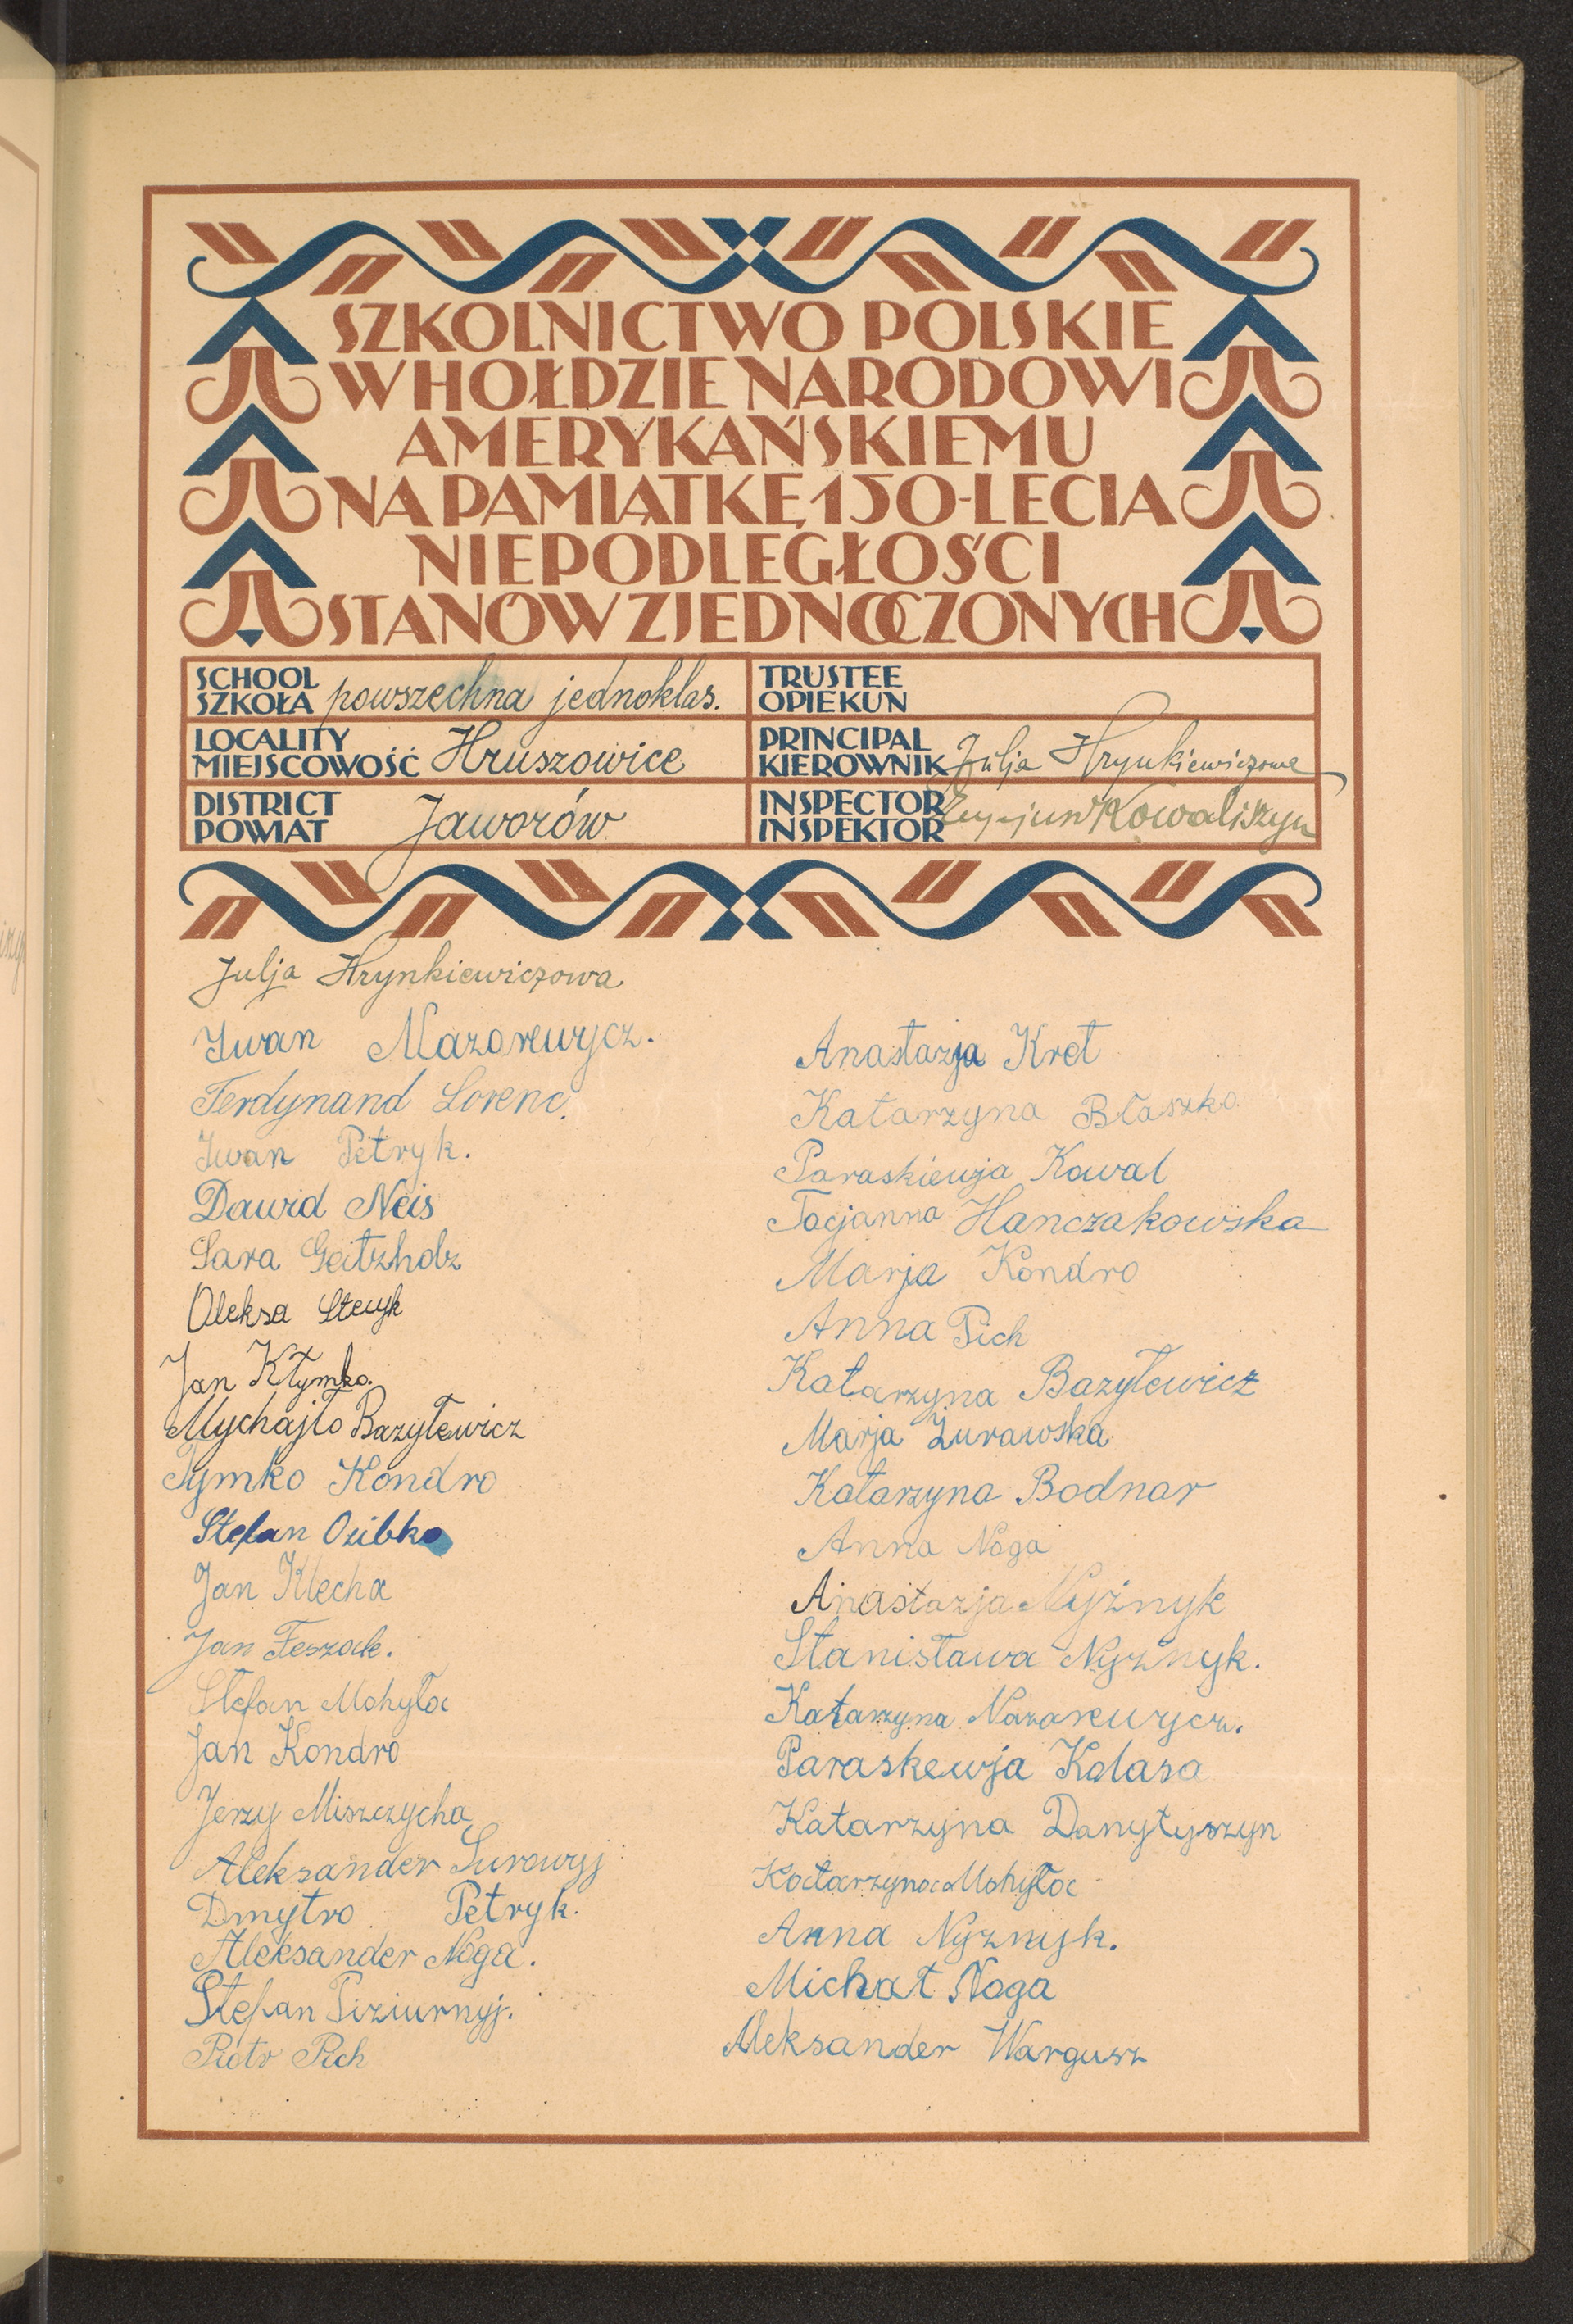 SZKOLNICTWO POLSKIE
W HOŁDZIE NARODOWI
AMERYKAŃSKIEMU
NA PAMIĄTKĘ 150-LECIA
NIEPODLEGŁOŚCI
STANÓW ZJEDNOCZONYCH
SCHOOL
SZKOŁA powszechna jednoklas.
TRUSTEE
OPIEKUN
LOCALITY
MIEJSCOWOŚĆ Hruszowice
PRINCIPAL
KIEROWNIK Julja Hrynkiewiczowa
DISTRICT
POWIAT Jaworów
INSPECTOR
INSPEKTOR Kowaliszyn
Julja Hrynkiewiczowa
Iwan Nazarewycz.
Ferdynand Lorenc.
Iwan Petryk.
Dawid Neis
Sara Geitzholz
Oleksa Stecyk
Jan Kłymko.
Mychajło Bazyłewicz
Tymko Kondro
Stefan Ozibko
Jan Klecha
Jan Feszak.
Stefan Mohyła
Jan Kondro
Jerzy Miszczycha
Aleksander Surowyj
Dmytro Petryk.
Aleksander Noga.
Stefan Piziurnyj.
Piotr Pich
Anastazja Kret
Katarzyna Błaszko
Paraskiewja Kowal
Tacjanna Hanczakowska
Marja Kondro
Anna Pich
Katarzyna Bazyłewicz
Marja Żurawska
Katarzyna Bodnar
Anna Noga
Anastazja Nyżnyk
Stanisława Nyżnyk.
Katarzyna Nazarewycz.
Paraskewja Kalasa
Katarzyna Danyłyszyn
Katarzyna Mohyła
Anna Nyznyk.
Michał Noga
Aleksander Wargusz